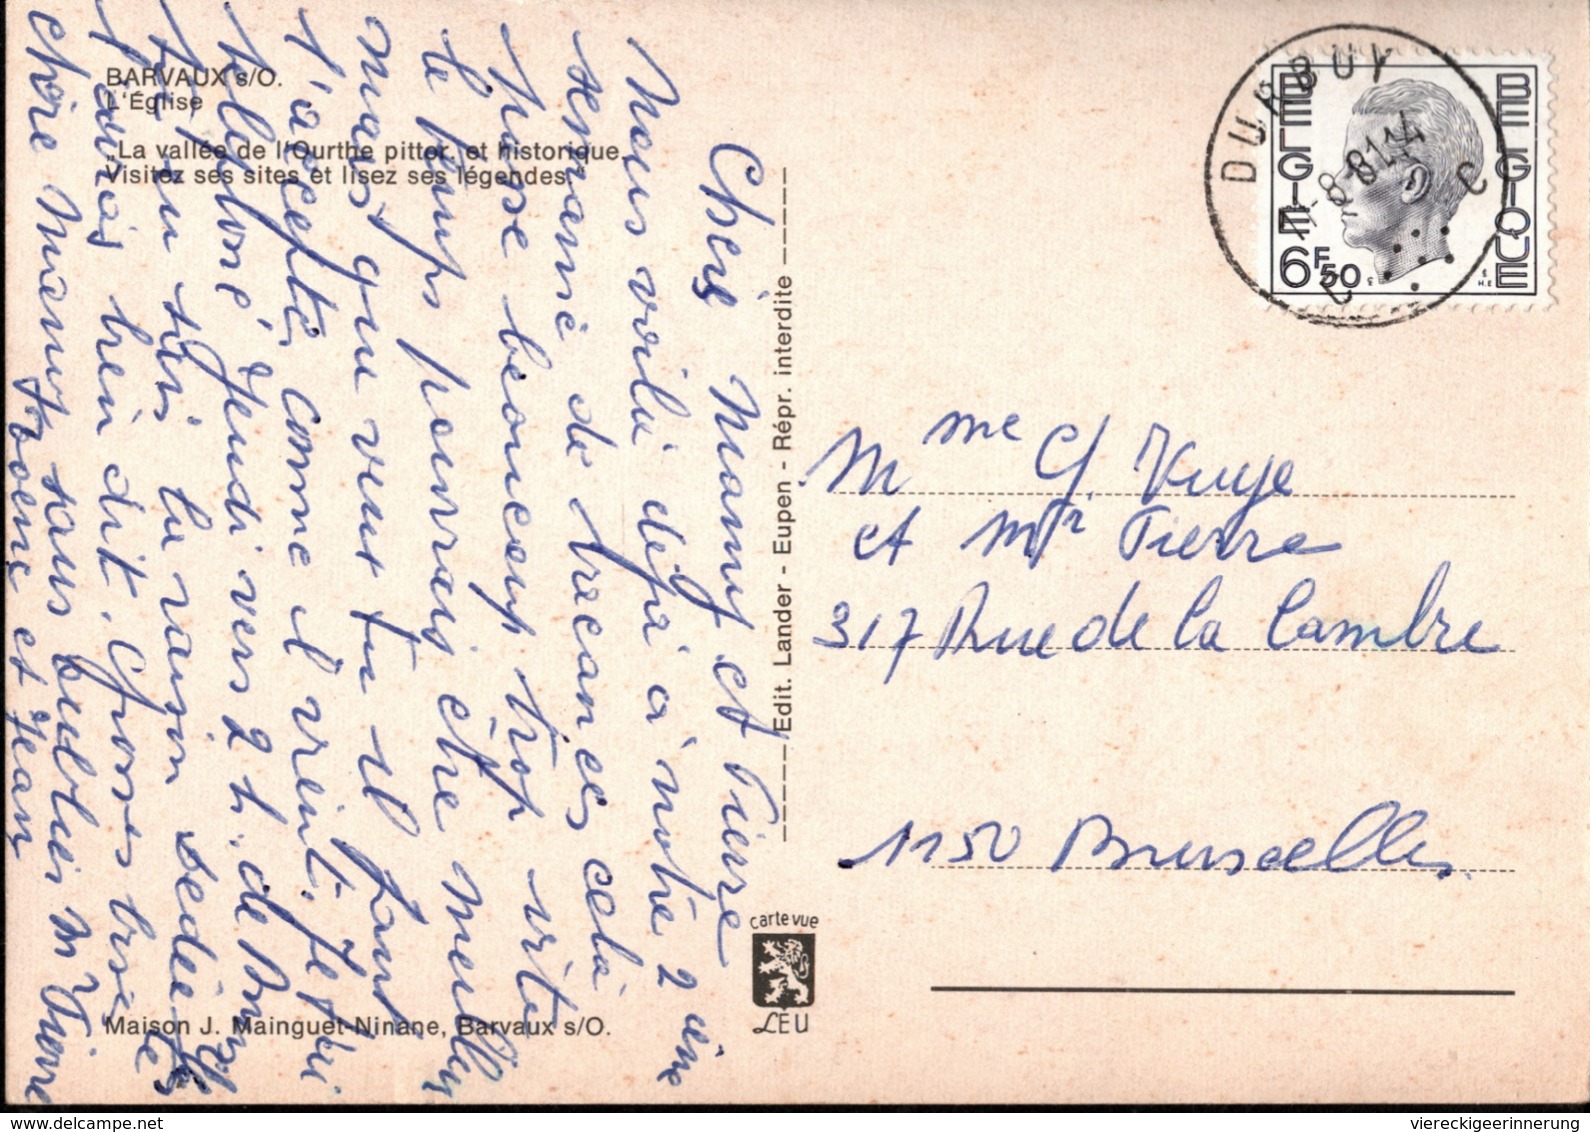 BARVAUX s/O.
L'Église
„La vallée de l'Ourthe pittor. et historique.
Visitez ses sites et lisez ses légendes.
Maison J. Mainguet-Ninane, Barvaux s/O.
Edit. Lander - Eupen - Répr. interdite
carte vue
LEU
DURBUY
8. 81 14
C
BELGIE
BELGIQUE
6F50
Mme G. Vuye
et Mr Pierre
317 Rue de la Cambre
1150 Bruxelles
Chère Mamy et Pierre
Nous voilà dejà à notre 2 ième
semaine de vacances celà
passe beaucoup trop vite
le temps pourrais être meilleur
mais que veut tu il faut
l'accepter comme il vient. Je t'ai
telephoné jeudi vers 2 h. de
tu en sais la raison
bien dit. Grosses bises
chère Mamy sans oublier Mr Pierre
et Jean